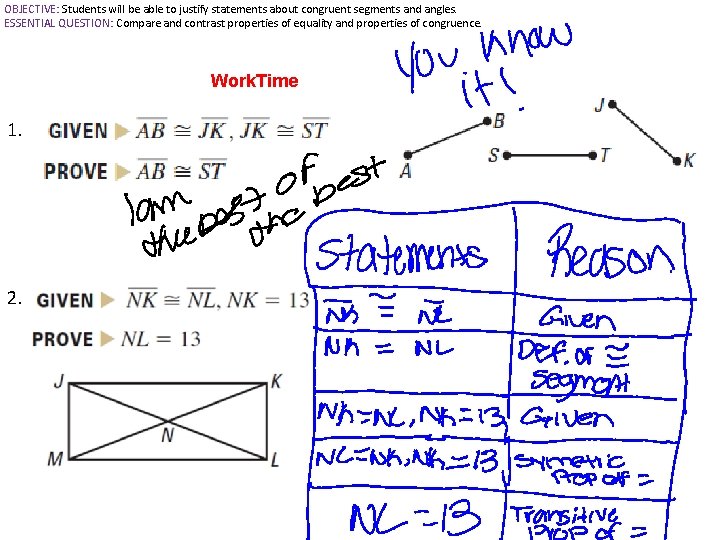 OBJECTIVE: Students will be able to justify statements about congruent segments and angles.
ESSENTIAL QUESTION: Compare and contrast properties of equality and properties of congruence.
You know
it!
Work.Time
1. GIVEN ▶ AB ≅ JK, JK ≅ ST
PROVE ▶ AB ≅ ST
A B S T J K
I am
the best of
the best
Statements Reason
2. GIVEN ▶ NK ≅ NL, NK = 13
PROVE ▶ NL = 13
J K
N
M L
NK ≅ NL Given
NK = NL Def. of ≅
segment
NK=NL, NK=13 Given
NL=NK, NK=13 Symetric
Prop of =
NL = 13 Transitive
Prop of =